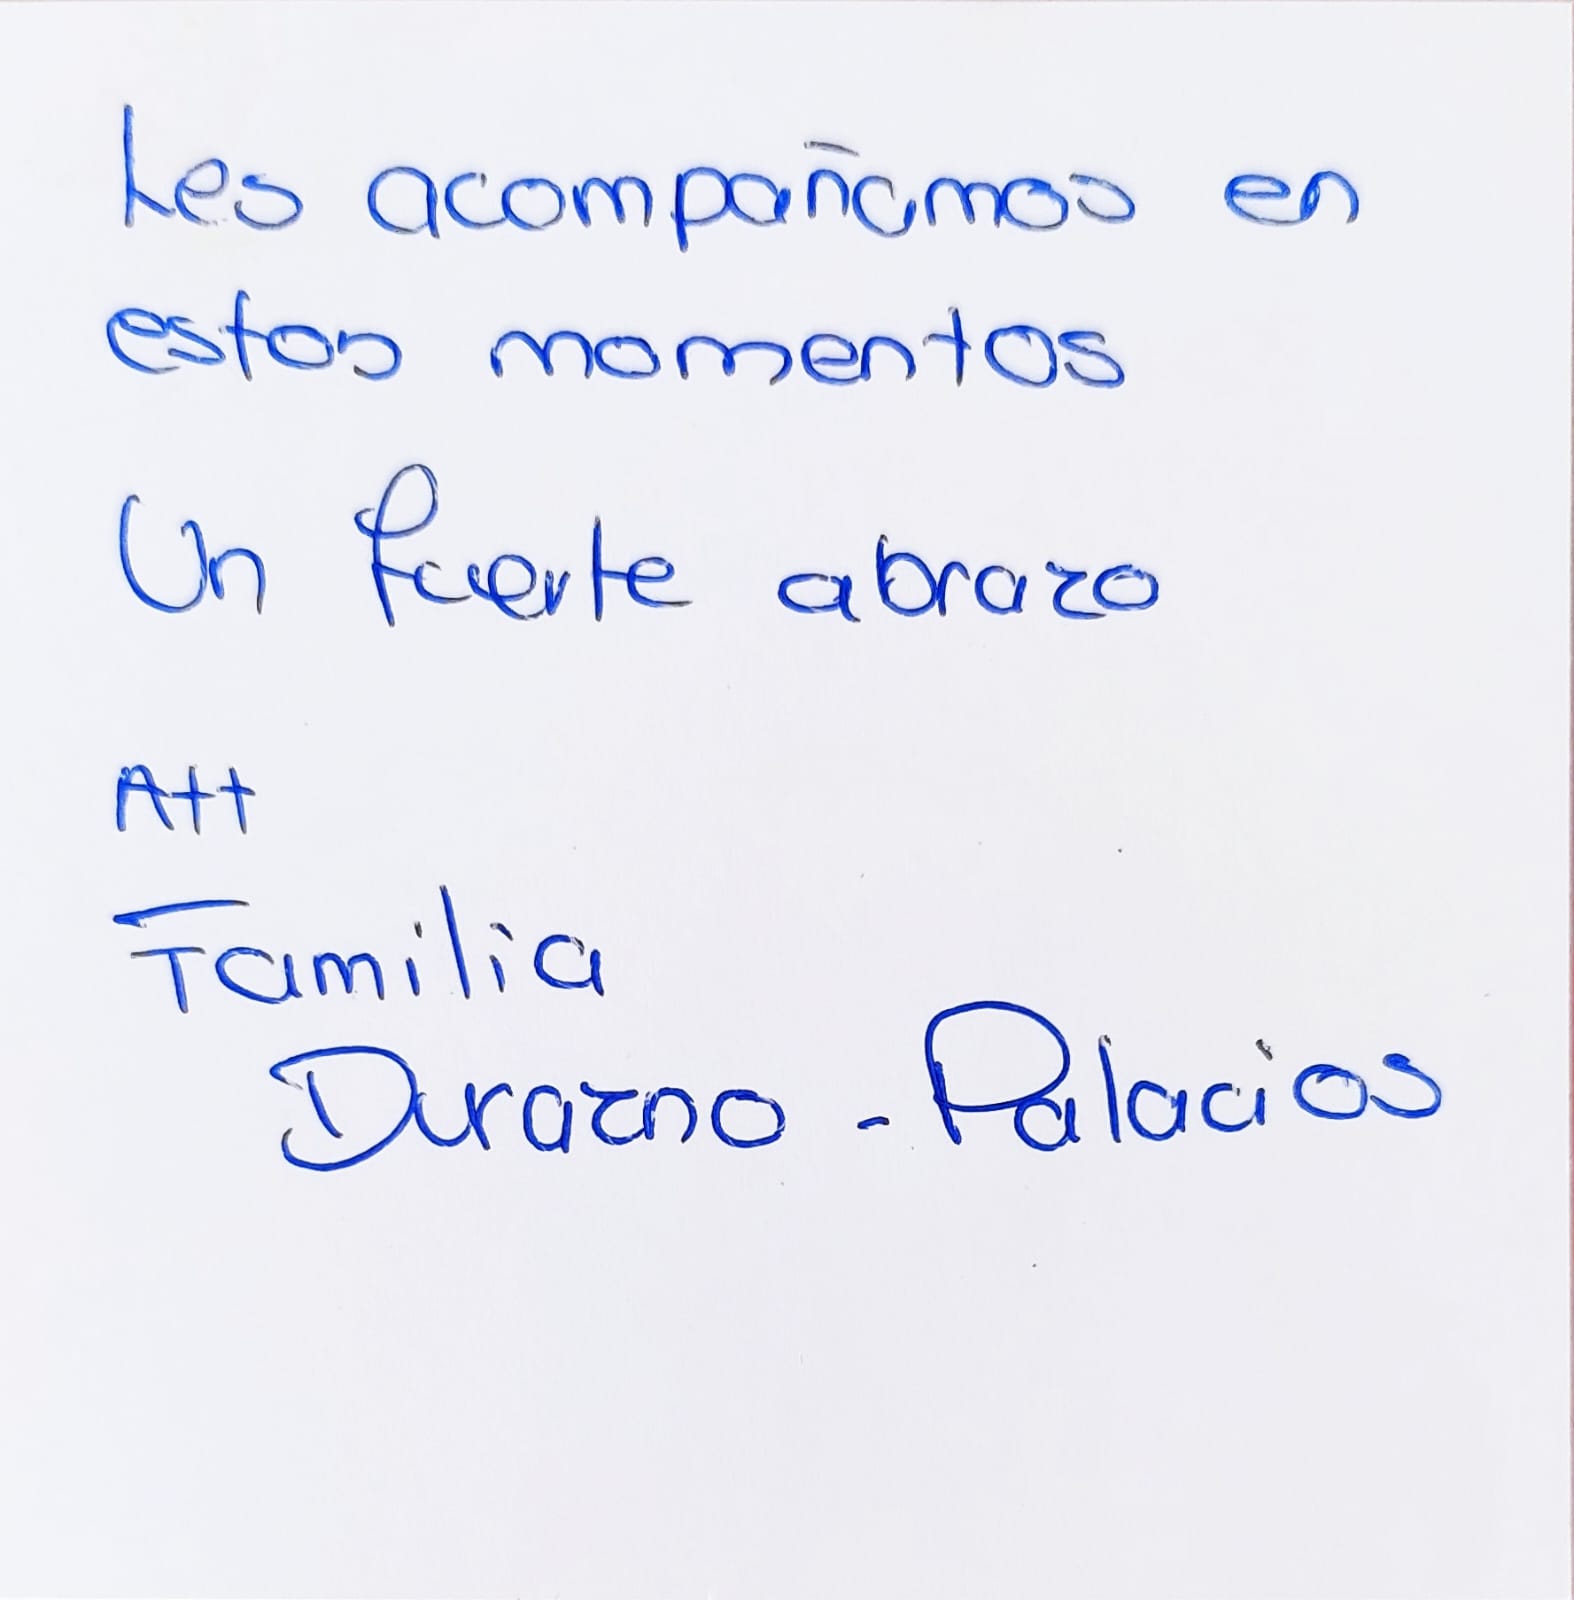 Les acompañamos en
estos momentos
Un fuerte abrazo
Att
Familia
Durazno - Palacios